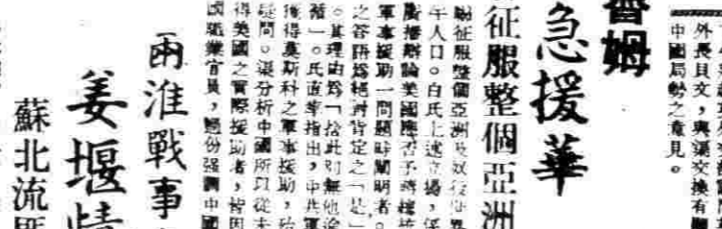 外長貝文，與渠交換有關
中國局勢之意見。
姆
急援華
征服整個亞洲
征服整個亞洲及奴役世界
半人口。白氏上述立場，係
廣播辯論美國應否予蔣總統
軍事援助一問題時闡明者。
之答語爲絕對肯定之「是」
。其理由爲「捨此別無他途
循」。氏並率指出，中共軍
獲得莫斯科之軍事援助，殆
疑問。渠分析中國所以從未
得美國之實際援助者，皆因
國職業官員，過份强調中國
兩淮戰事
姜堰情
蘇北流匪